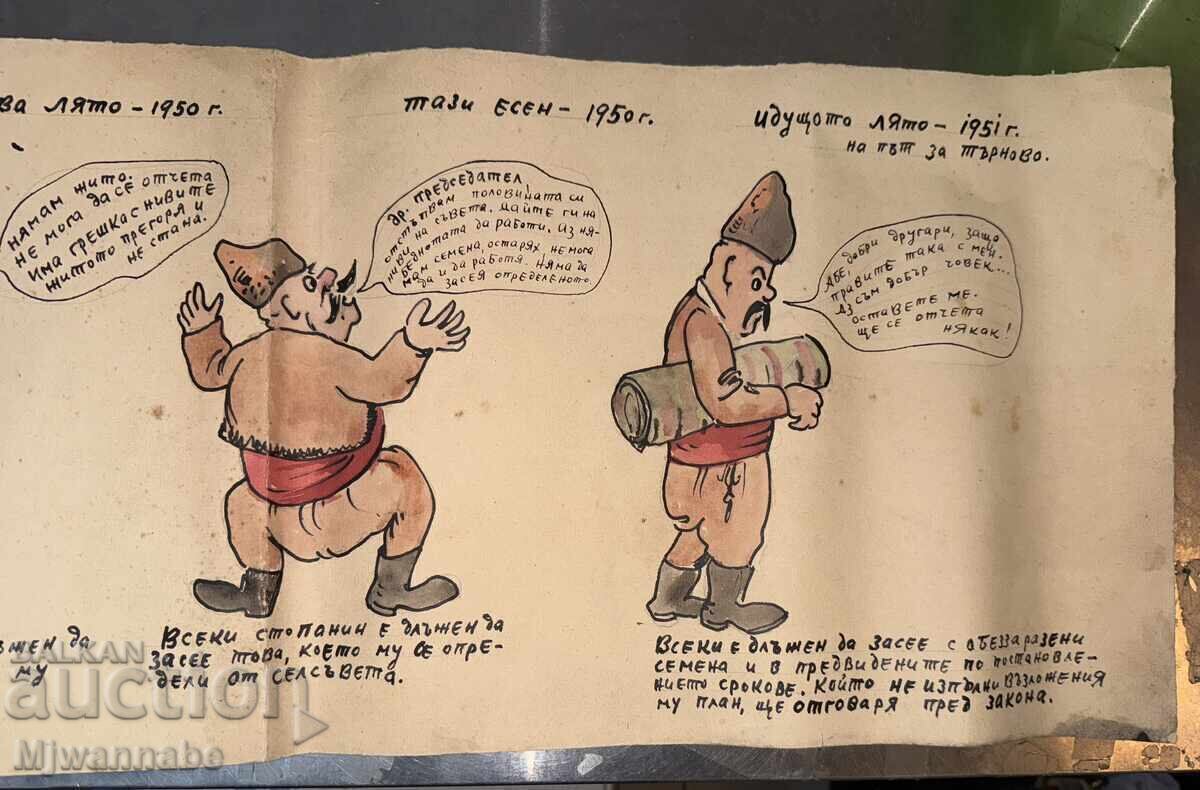 ВА ЛЯТО - 1950 г.
ТАЗИ ЕСЕН - 1950 г.
ИДУЩОТО ЛЯТО - 1951 г.
НА ПЪТ ЗА ТЪРНОВО.
НЯМАМ ЖИТО.
НЕ МОГА ДА СЕ ОТЧЕТА
ИМА ГРЕШКА С НИВИТЕ
ЖИТОТО ПРЕГОРЯ И
НЕ СТАНА.
ДР. ПРЕДСЕДАТЕЛ,
ОТСТЪПВАМ ПОЛОВИНАТА СИ
НИВИ НА СЪВЕТА. ДАЙТЕ ГИ НА
БЕДНОТАТА ДА РАБОТИ. ИЗ НЯ-
МАМ СЕМЕНА, ОСТАРЯХ, НЕ МОГА
ДА И ДА РАБОТЯ. НЯМА ДА
ЗАСЕЯ ОПРЕДЕЛЕНОТО.
АБЕ, ДОБРИ ДРУГАРИ, ЗАЩО
ПРАВИТЕ ТАКА С МЕН.
АЗ СЪМ ДОБЪР ЧОВЕК...
ОСТАВЕТЕ МЕ.
ЩЕ СЕ ОТЧЕТА
НЯКАК!
ЖЕН ДА
МУ
ВСЕКИ СТОПАНИН Е ДЛЪЖЕН ДА
ЗАСЕЕ ТОВА, КОЕТО МУ СЕ ОПРЕ-
ДЕЛИ ОТ СЕЛСЪВЕТА.
ВСЕКИ Е ДЛЪЖЕН ДА ЗАСЕЕ С ОБЕЗЗАРАЗЕНИ
СЕМЕНА И В ПРЕДВИДЕНИТЕ ПО ПОСТАНОВЛЕ-
НИЕТО СРОКОВЕ. КОЙТО НЕ ИЗПЪЛНИ ВЪЗЛОЖЕНИЯ
МУ ПЛАН, ЩЕ ОТГОВАРЯ ПРЕД ЗАКОНА.
BALKAN
auction
Mjwannabe